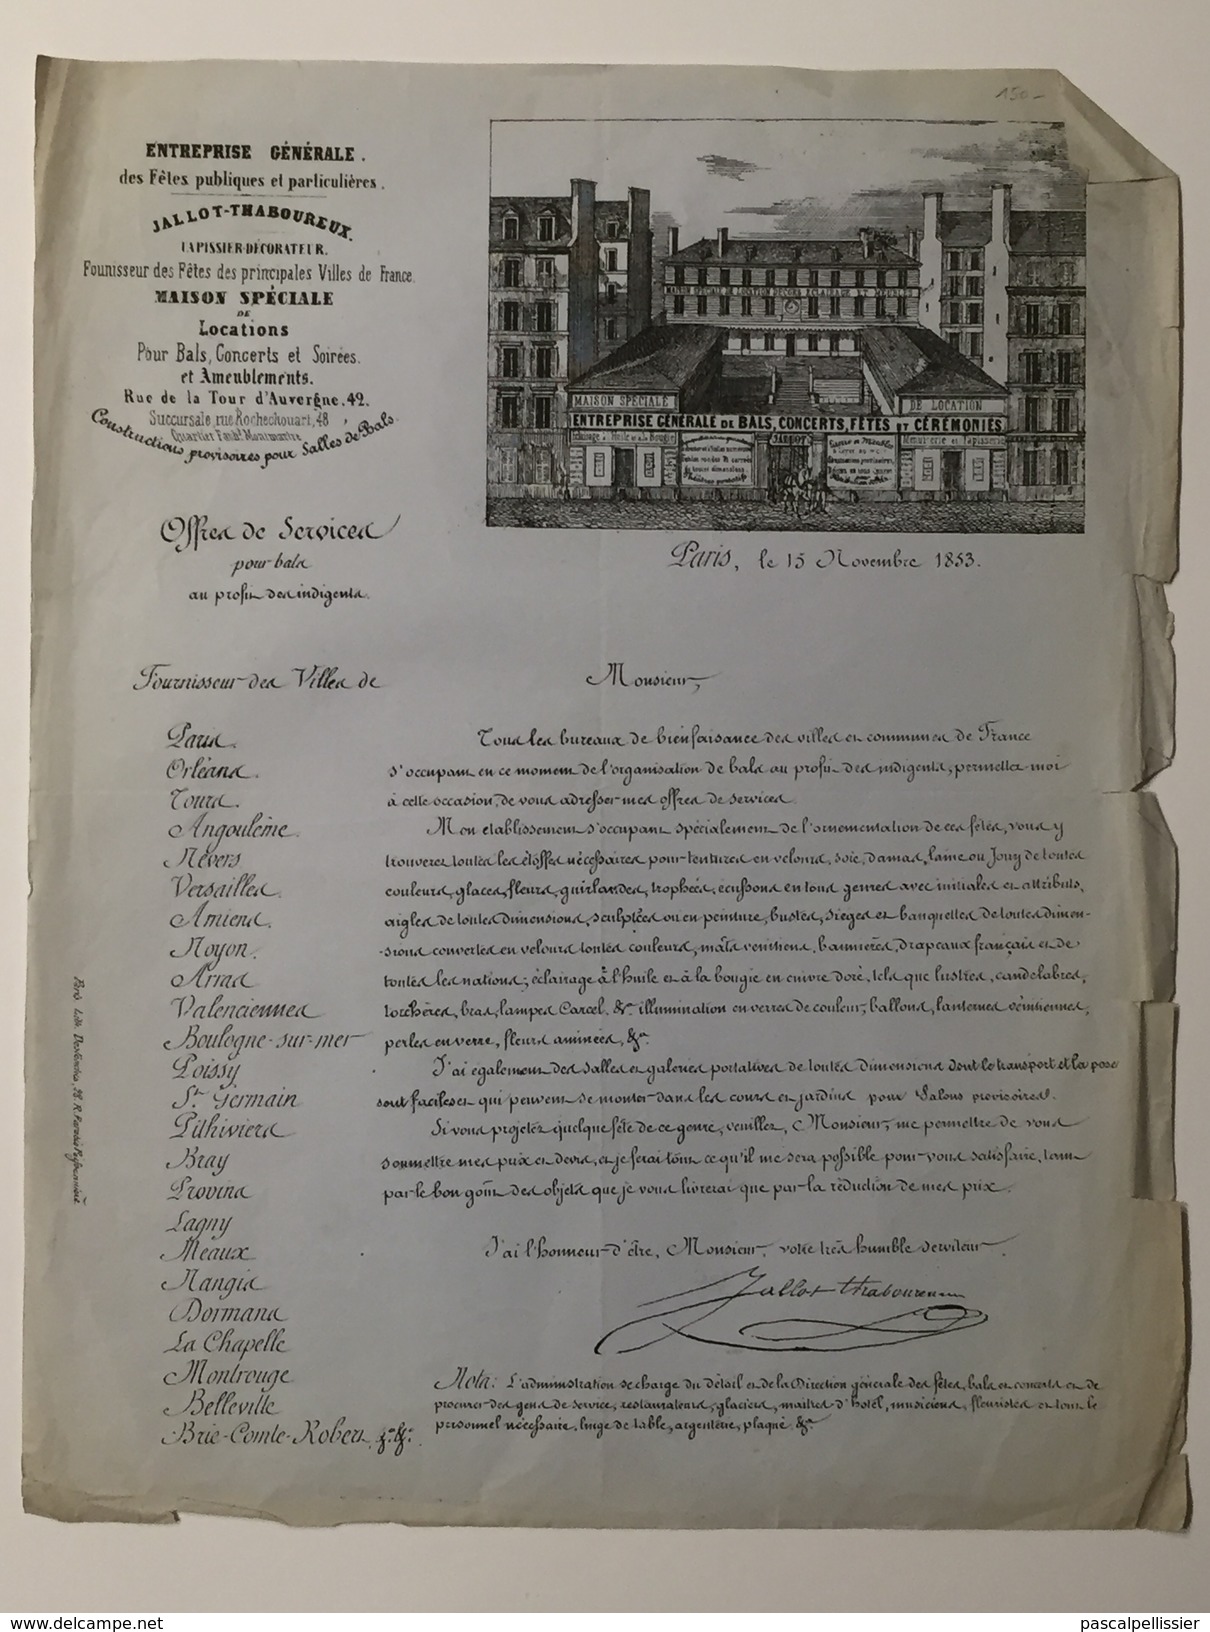 150-
ENTREPRISE GÉNÉRALE.
des Fêtes publiques et particulières.
JALLOT-THABOUREUX.
TAPISSIER-DÉCORATEUR.
Founisseur des Fêtes des principales Villes de France.
MAISON SPÉCIALE
DE
Locations
Pour Bals, Concerts et Soirées.
et Ameublements.
Rue de la Tour d'Auvergne. 42.
Succursale, rue Rochechouart, 48
Quartier Faubg. Montmartre
Constructions provisoires pour Salles de Bals.
MAISON SPÉCIALE DE LOCATION DÉCORS ÉCLAIRAGE ET MEUBLES
MAISON SPÉCIALE
DE LOCATION
ENTREPRISE GÉNÉRALE DE BALS, CONCERTS, FÊTES ET CÉRÉMONIES
Eclairage à l'Huile et à la Bougie
JALLOT
Menuiserie et Tapisserie
Offres de Services
pour bals
au profit des indigents.
Paris, le 15 Novembre 1853.
Fournisseur des Villes de
Paris.
Orléans.
Tours.
Angoulème.
Névers
Versailles.
Amiens.
Noyon.
Arras
Valenciennes
Boulogne-sur-mer
Poissy
St. Germain
Pithiviers
Bray
Provins
Lagny
Meaux
Nangis
Dormans
La Chapelle
Montrouge
Belleville
Brie-Comte-Robert, &a. &a.
Monsieur,
Tous les bureaux de bienfaisance des villes et communes de France
s'occupant en ce moment de l'organisation de bals au profit des indigents, permettez moi
à cette occasion, de vous adresser mes offres de services.
Mon etablissement s'occupant spécialement de l'ornementation de ces fêtes, vous y
trouverez toutes les étoffes nécessaires pour tentures en velours, soie, damas, laine ou Jouy de toutes
couleurs, glaces, fleurs, guirlandes, trophées, ecussons en tous genres avec initiales et attributs,
aigles de toutes dimensions, sculptées ou en peinture, bustes, sieges et banquettes de toutes dimen-
-sions couvertes en velours toutes couleurs, mâts venitiens, bannieres, drapeaux français et de
toutes les nations; éclairage à l'huile et à la bougie en cuivre doré, tels que lustres, candelabres,
torchères, bras, lampes Carcel, &a. illumination en verres de couleur, ballons, lanternes vénitiennes,
perles en verre, fleurs animées, &a.
J'ai également des salles et galeries portatives de toutes dimensions dont le transport et la pose
sont faciles et qui peuvent se monter dans les cours et jardins pour Salons provisoires.
Si vous projetez quelque fête de ce genre, veuillez, Monsieur, me permettre de vous
soumettre mes prix et devis, et je ferai tout ce qu'il me sera possible pour vous satisfaire, tant
par le bon goût des objets que je vous livrerai que par la réduction de mes prix.
J'ai l'honneur d'être, Monsieur, votre très humble serviteur.
Jallot thaboureux
Nota: L'administration se charge du détail et de la Direction générale des fêtes, bals et concerts et de
procurer des gens de service, restaurateurs, glaciers, maîtres d'hôtel, musiciens, fleuristes et tout le
personnel nécessaire, linge de table, argenterie, plaqué &a.
www.delcampe.net
pascalpellissier